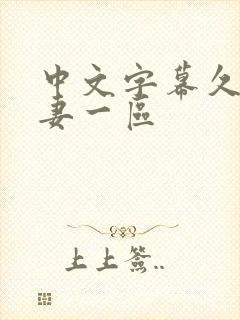 中文字幕久
妻一区
上上签..